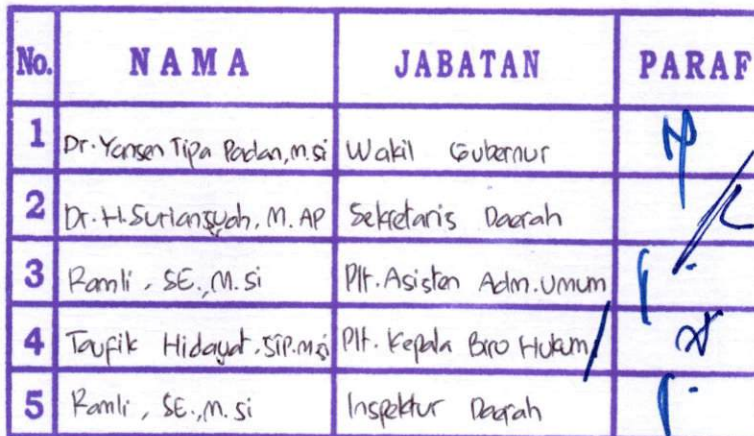 No. NAMA JABATAN PARAF
1 Dr. Yansen Tipa Padan, M.si Wakil Gubernur
2 Dr. H. Suriansyah, M. AP Sekretaris Daerah
3 Ramli, SE., M. si Plt. Asisten Adm. Umum
4 Taufik Hidayat, STP. M.si Plt. Kepala Biro Hukum
5 Ramli, SE., M. si Inspektur Daerah